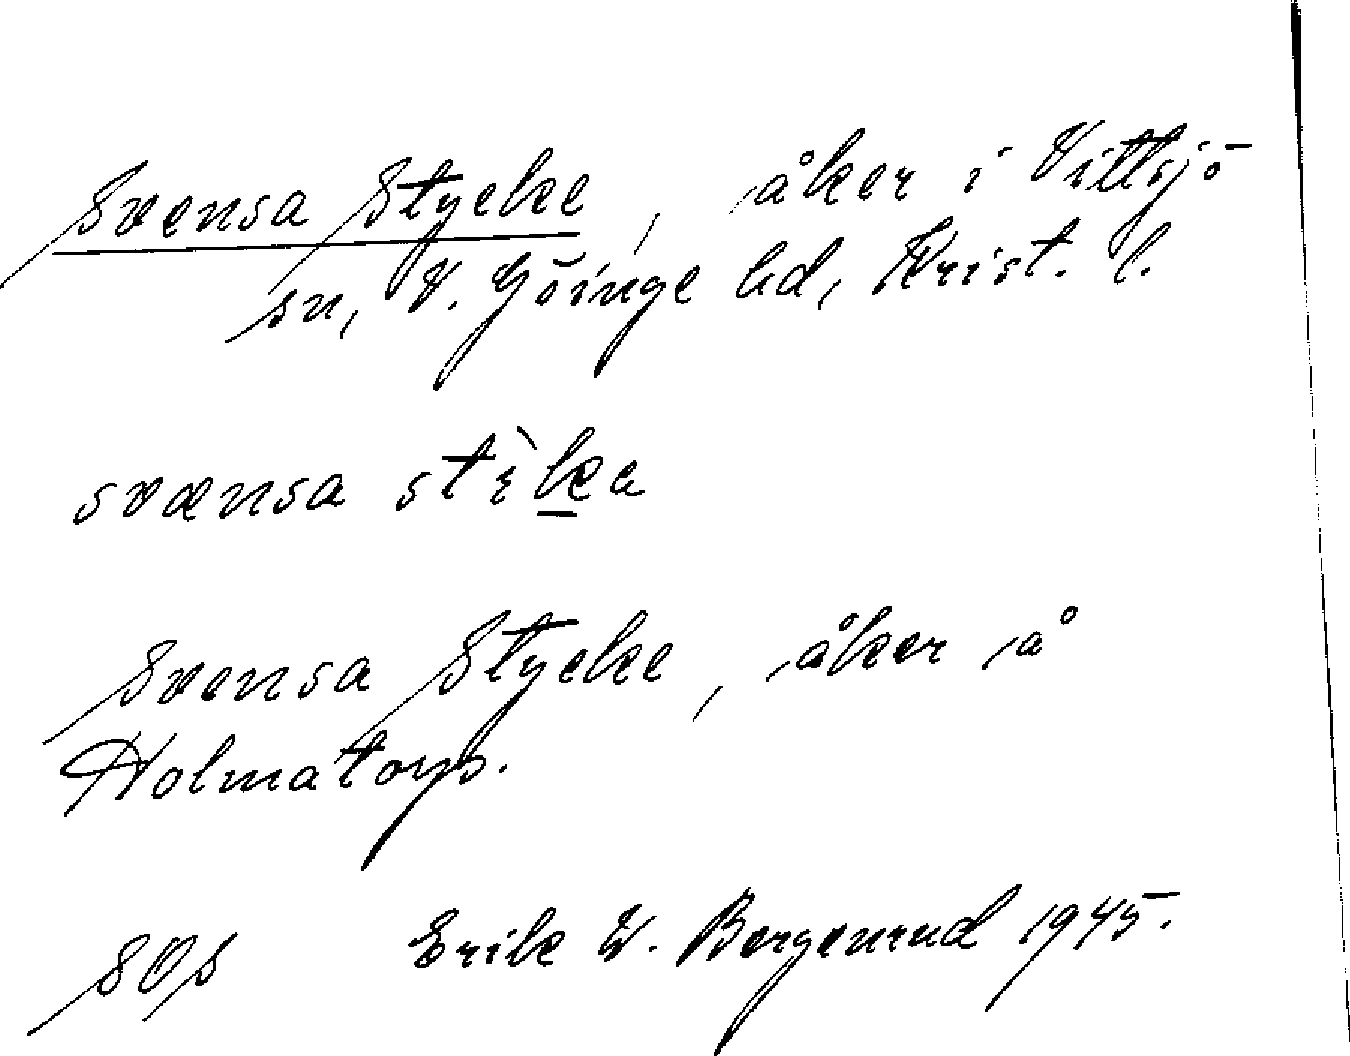 Svensa Stycke, åker i Vittsjö
sn, V. Göinge hd, Krist. l.
svænsa stìka
Svensa Stycke, åker å
Holmatorp.
SOS Erik W. Bergenrud 1945.